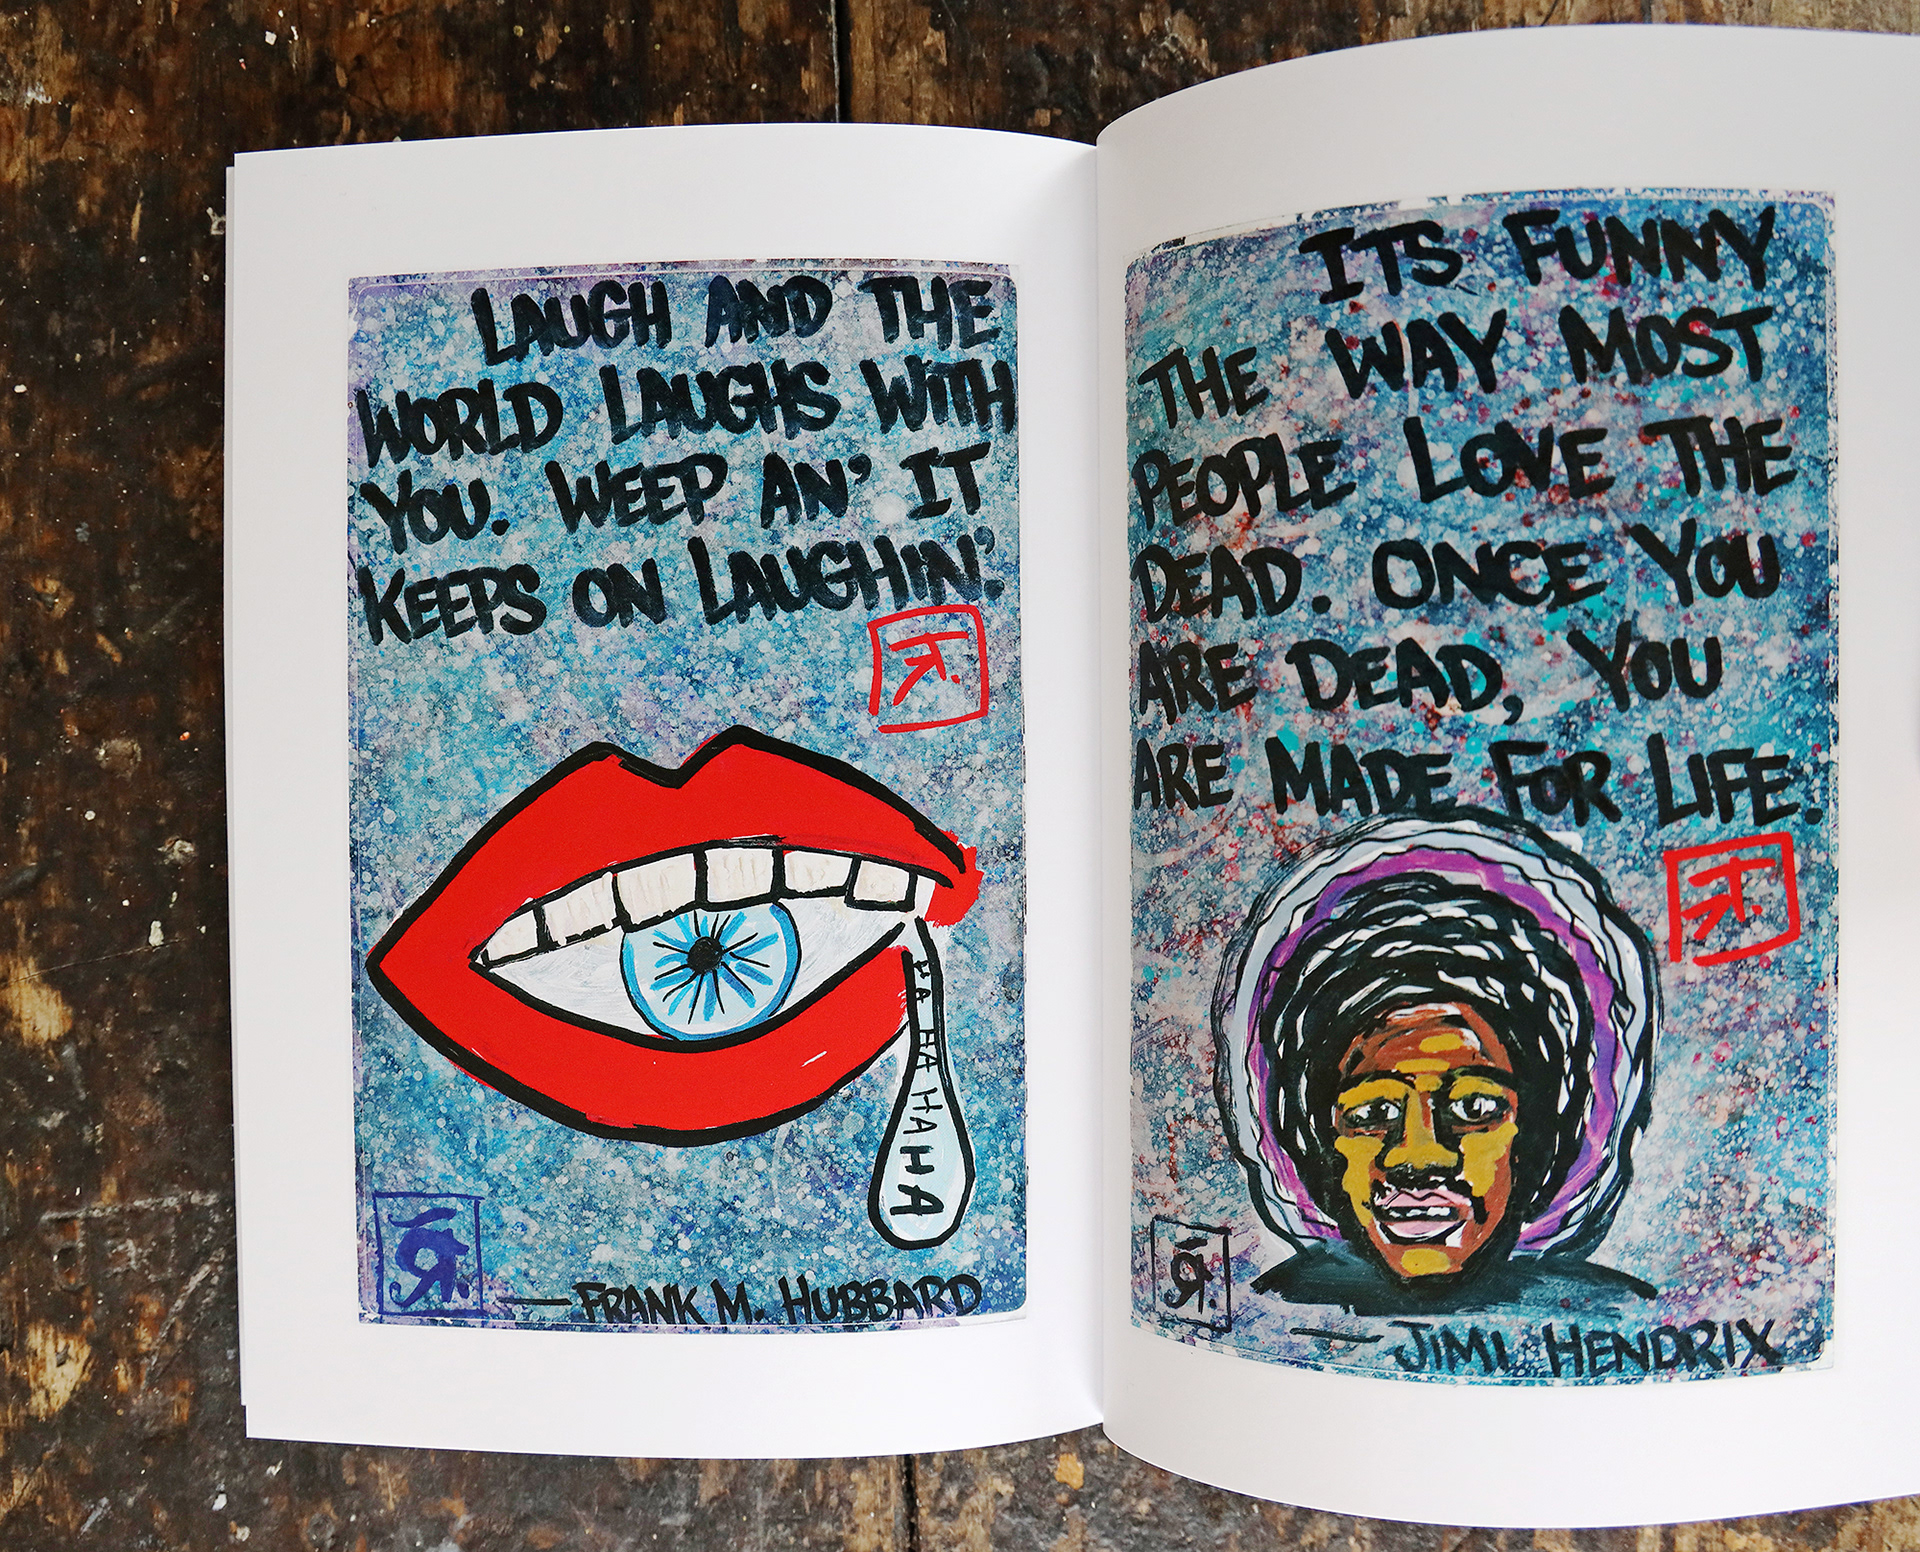 LAUGH AND THE
WORLD LAUGHS WITH
YOU. WEEP AN' IT
KEEPS ON LAUGHIN'.
HA HA HA HA HA
— FRANK M. HUBBARD
ITS FUNNY
THE WAY MOST
PEOPLE LOVE THE
DEAD. ONCE YOU
ARE DEAD, YOU
ARE MADE FOR LIFE.
— JIMI HENDRIX